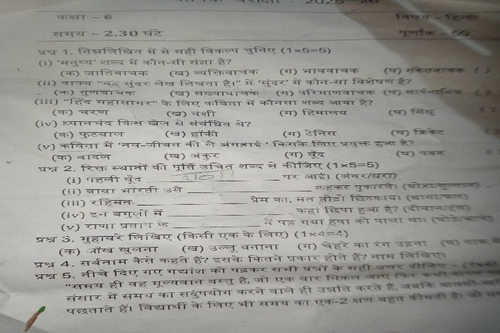 2025-26
कक्षा - 6 विषय - हिन्दी
समय - 2.30 घंटे पूर्णांक - 50
प्रश्न 1. निम्नलिखित में से सही विकल्प चुनिए (1×5=5)
(i) 'मनुष्य' शब्द में कौन-सी संज्ञा है?
(क) जातिवाचक (ख) व्यक्तिवाचक (ग) भाववाचक
(ii) वाक्य "वह सुंदर लेख लिखता है।" में 'सुंदर' में कौन-सा विशेषण है?
(क) गुणवाचक (ख) संख्यावाचक (ग) परिमाणवाचक (घ) सार्वनामिक
(iii) "हिंद महासागर" के लिए कविता में कौनसा शब्द आया है?
(क) चरण (ख) वंशी (ग) हिमालय (घ) सिंधु
(iv) ध्यानचंद किस खेल से संबंधित थे?
(क) फुटबाल (ख) हॉकी (ग) टेनिस (घ) क्रिकेट
(v) कविता में 'नव-जीवन की ले अंगड़ाई' किसके लिए प्रयुक्त हुआ है?
(क) बादल (ख) अंकुर (ग) बूँद (घ) पवन
प्रश्न 2. रिक्त स्थानों की पूर्ति उचित शब्द से कीजिए (1×5=5)
(i) पहली बूँद पर आई। (अंबर/धरा)
(ii) बाबा भारती उसे कहकर पुकारते।
(iii) रहिमन प्रेम का, मत तोड़ो छिटकाय।
(iv) इन बगुलों में कहाँ छिपा हुआ है?
(v) राणा प्रताप के से पड़ गया हवा को पाला था।
प्रश्न 3. मुहावरे लिखिए (किसी एक के लिए) (1×4=4)
(क) आँख खुलना (ख) उल्लू बनाना (ग) चेहरे का रंग उड़ना
प्रश्न 4. सर्वनाम किसे कहते हैं? इसके कितने प्रकार होते हैं? नाम लिखिए।
प्रश्न 5. नीचे दिए गए गद्यांश को पढ़कर सभी प्रश्नों के सही उत्तर दीजिए
"समय ही वह मूल्यवान वस्तु है, जो एक बार निकल जाए फिर कभी
संसार में समय का सदुपयोग करने वाले ही उन्नति करते हैं, जबकि
पछताते हैं। विद्यार्थी के लिए भी समय का एक-2 क्षण बहुत कीमती है।